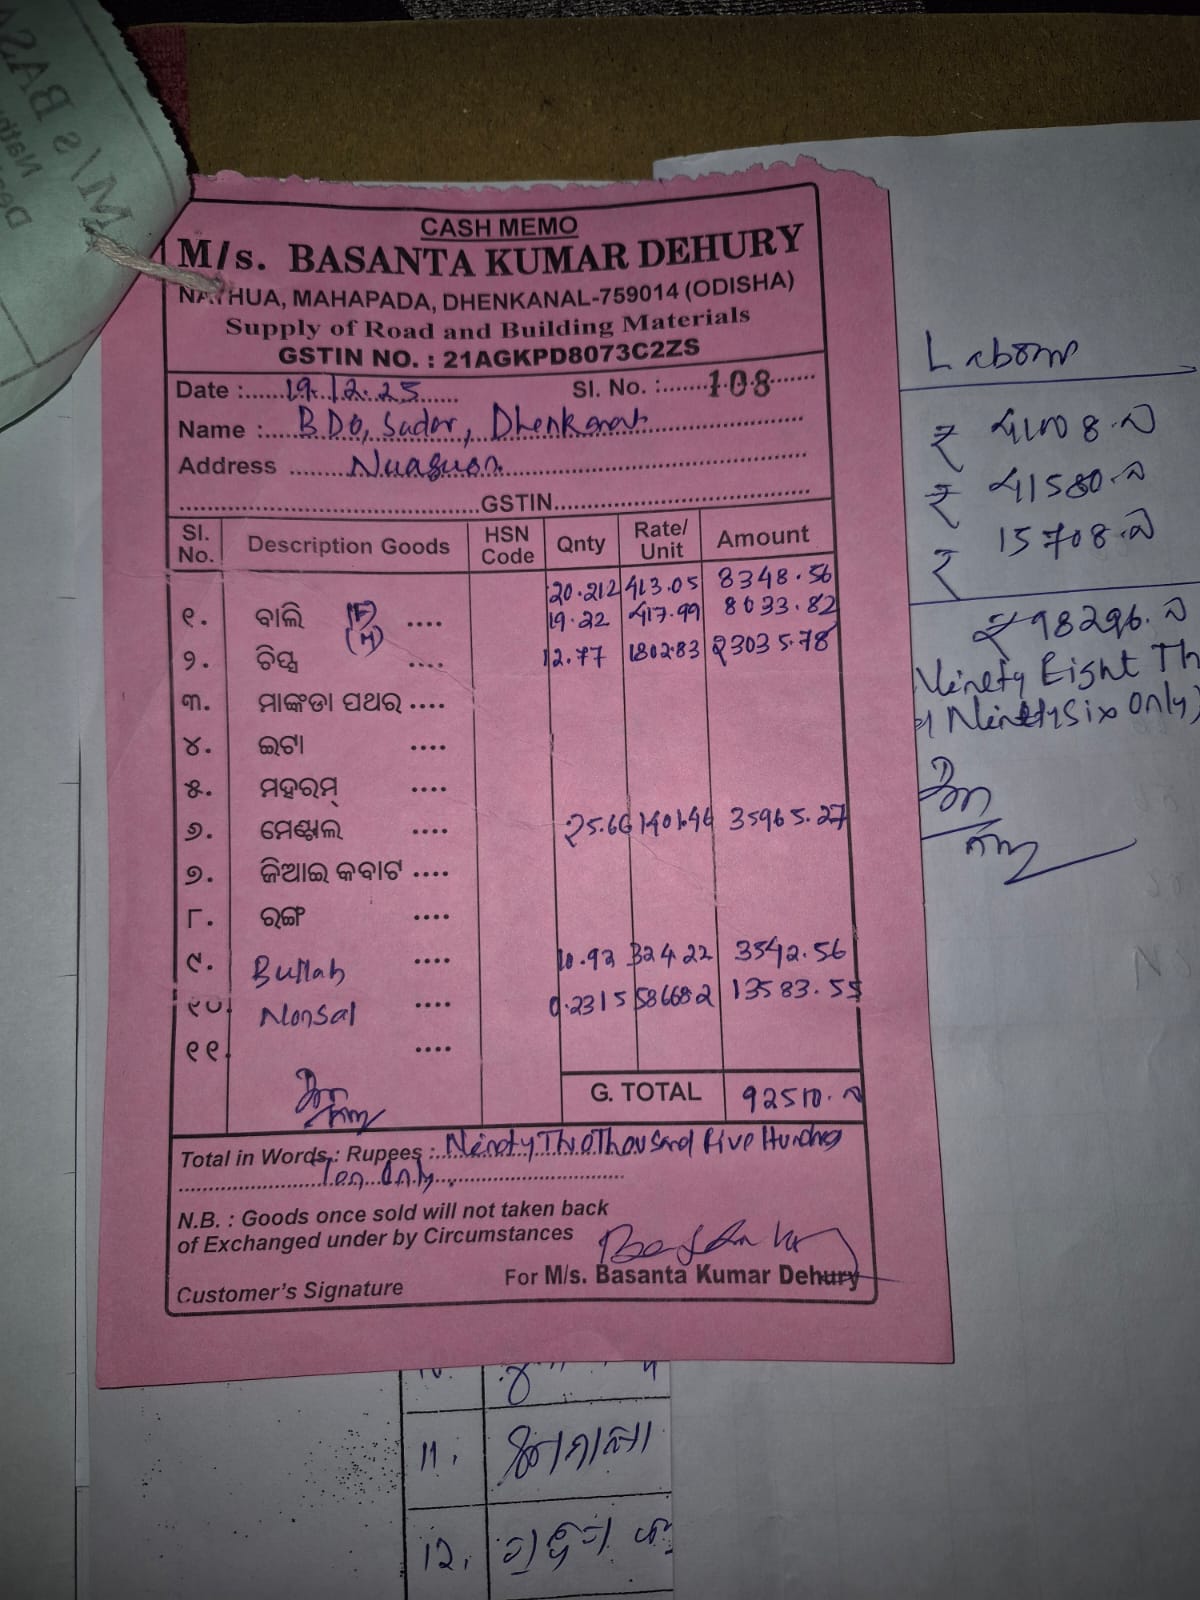 CASH MEMO
M/s. BASANTA KUMAR DEHURY
NATHUA, MAHAPADA, DHENKANAL-759014 (ODISHA)
Supply of Road and Building Materials
GSTIN NO. : 21AGKPD8073C2ZS
Date : 19.12.25 Sl. No. : 108
Name : BDO, Sadar, Dhenkanal
Address Nuagaon
GSTIN
Sl. No. Description Goods HSN Code Qnty Rate/Unit Amount
20.212 413.05 8348.56
୧. ବାଲି (F) .... 19.22 417.99 8033.82
(H)
୨. ଚିପ୍ସ .... 12.77 1802.83 23035.78
୩. ମାଙ୍କଡା ପଥର ....
୪. ଇଟା ....
୫. ମହରମ୍ ....
୬. ମେଣ୍ଟାଲ .... 25.66 1401.46 35965.27
୭. ଜିଆଇ କବାଟ ....
୮. ରଙ୍ଗ ....
୯. Bullah .... 10.92 324.22 3542.56
୧୦. Nonsal .... 0.2315 58668.2 13583.55
୧୧. ....
G. TOTAL 92510.
Total in Words : Rupees : Ninety Two Thousand Five Hundred
Ten Only.
N.B. : Goods once sold will not taken back
of Exchanged under by Circumstances
Customer's Signature
For M/s. Basanta Kumar Dehury
Labour
₹ 41008.
₹ 41580.
₹ 15708.
₹ 98296.
Ninety Eight Th
Ninety Six Only)
11.
12.
M/s BAS